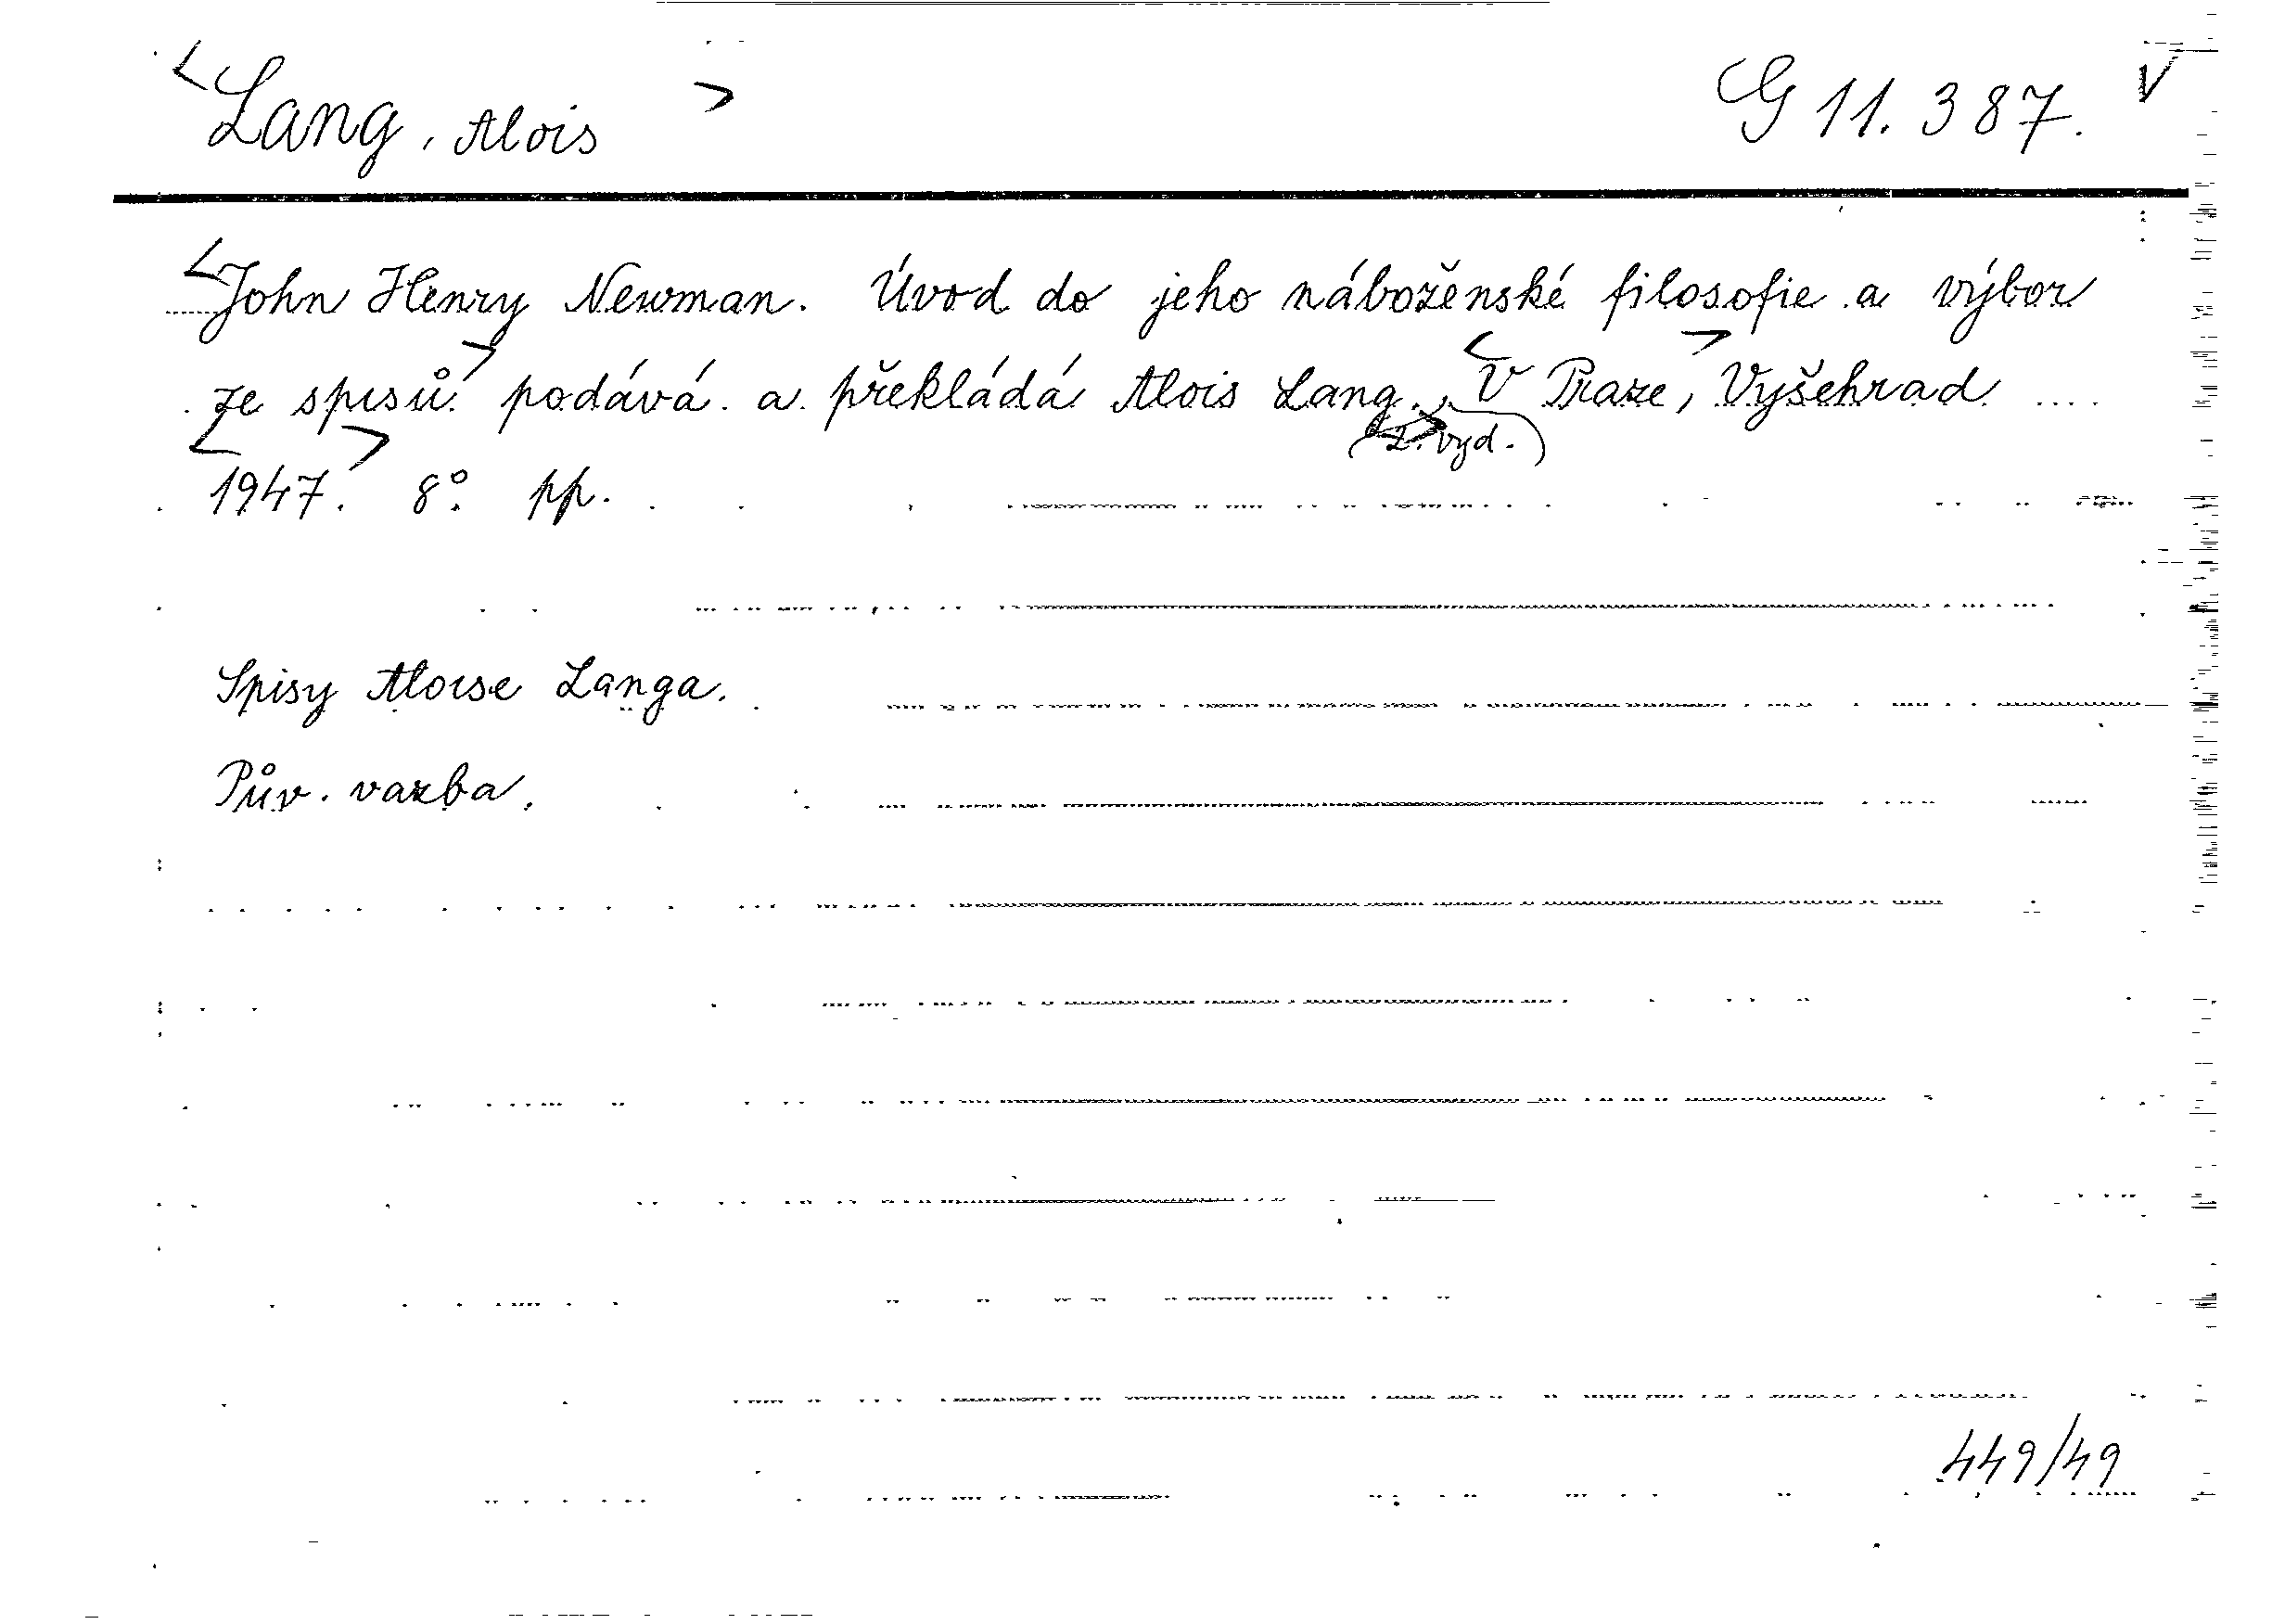 <Lang, Alois> G 11.387. V
<John Henry Newman. Úvod do jeho náboženské filosofie a výbor
ze spisů> podává a překládá Alois Lang., <V Praze,> Vyšehrad
(<2.> vyd.)
<1947.> 8° pp.
Spisy Aloise Langa.
Pův. vazba.
449/49